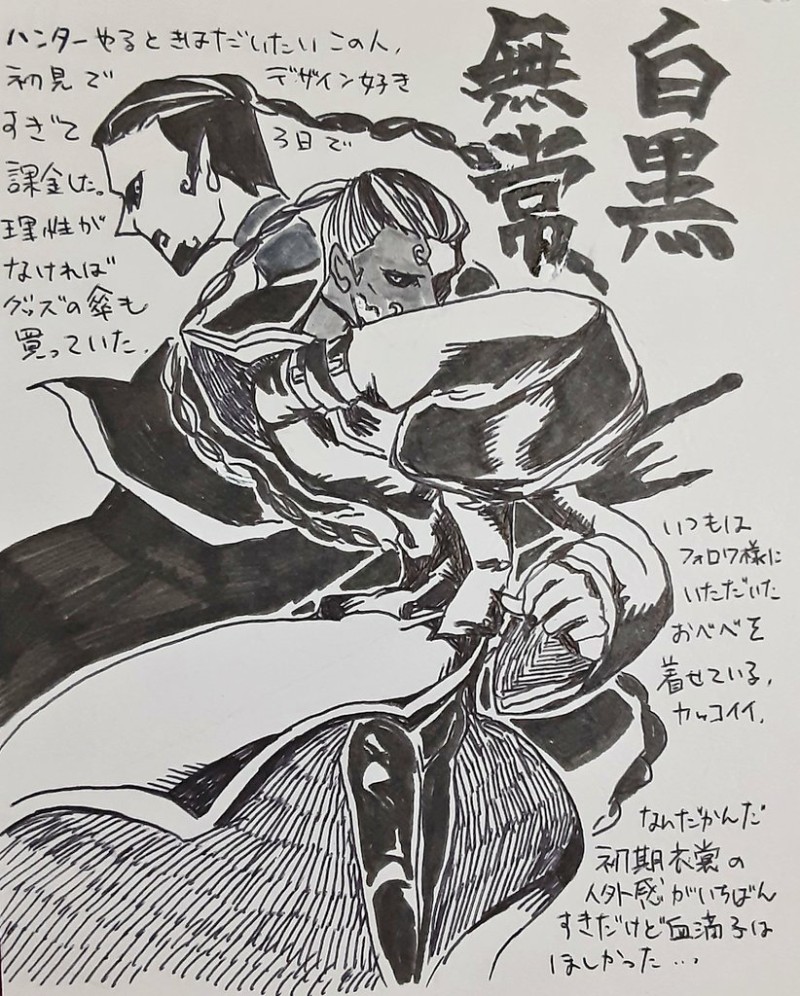 白黒
無常
ハンターやるときはだいたいこの人、
初見で デザイン好き
すぎて 3日で
課金した。
理性が
なければ
グッズの傘も
買っていた。
いつもは
フォロワ様に
いただいた
おべべを
着せている。
カッコイイ。
なんだかんだ
初期衣裳の
人外感がいちばん
すきだけど血滴子は
ほしかった…